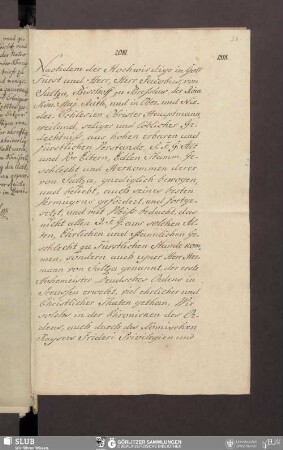 Nachdem der Hochwirdige in Gott
Fürst und Herr, Herr Jacobus von
Saltza, Bischoff zu Breslau, der Röm.
Kön. Maj. Rath, und in Ober und Nie-
der Schlesien Obrister Hauptmann
weiland, seliger und löblicher Ge-
dechtnis, aus hohen erbaren und
Fürstlichen Verstande, S. F. G. Alt
und Vor Eltern, Edlen Stamm, Ge-
schlecht und Herkommen derer
von Saltza, gnediglich bewogen
und beliebt, auch seines besten
Vermugens gefördert, und fortge-
setzt, und mit Fleiß bedacht, das
nicht allein S. F. G. aus solchen Al-
ten, Ehrlichen und Stamlichen Ge-
schlecht zu Fürstlichen Stande kom-
men, sondern auch einer Herr Her-
mann von Saltza genannt, der erste
Hohemeister Deudsches Ordens in
Preussen erwelet, viel ehrlicher und
Christlicher Thaten gethan, Wie
solchs in der Chroniken des Or-
dens, auch durch des Römischen
Kaysers Frideri Privilegien und
SLUB
Wir führen Wissen.
GÖRLITZER SAMMLUNGEN